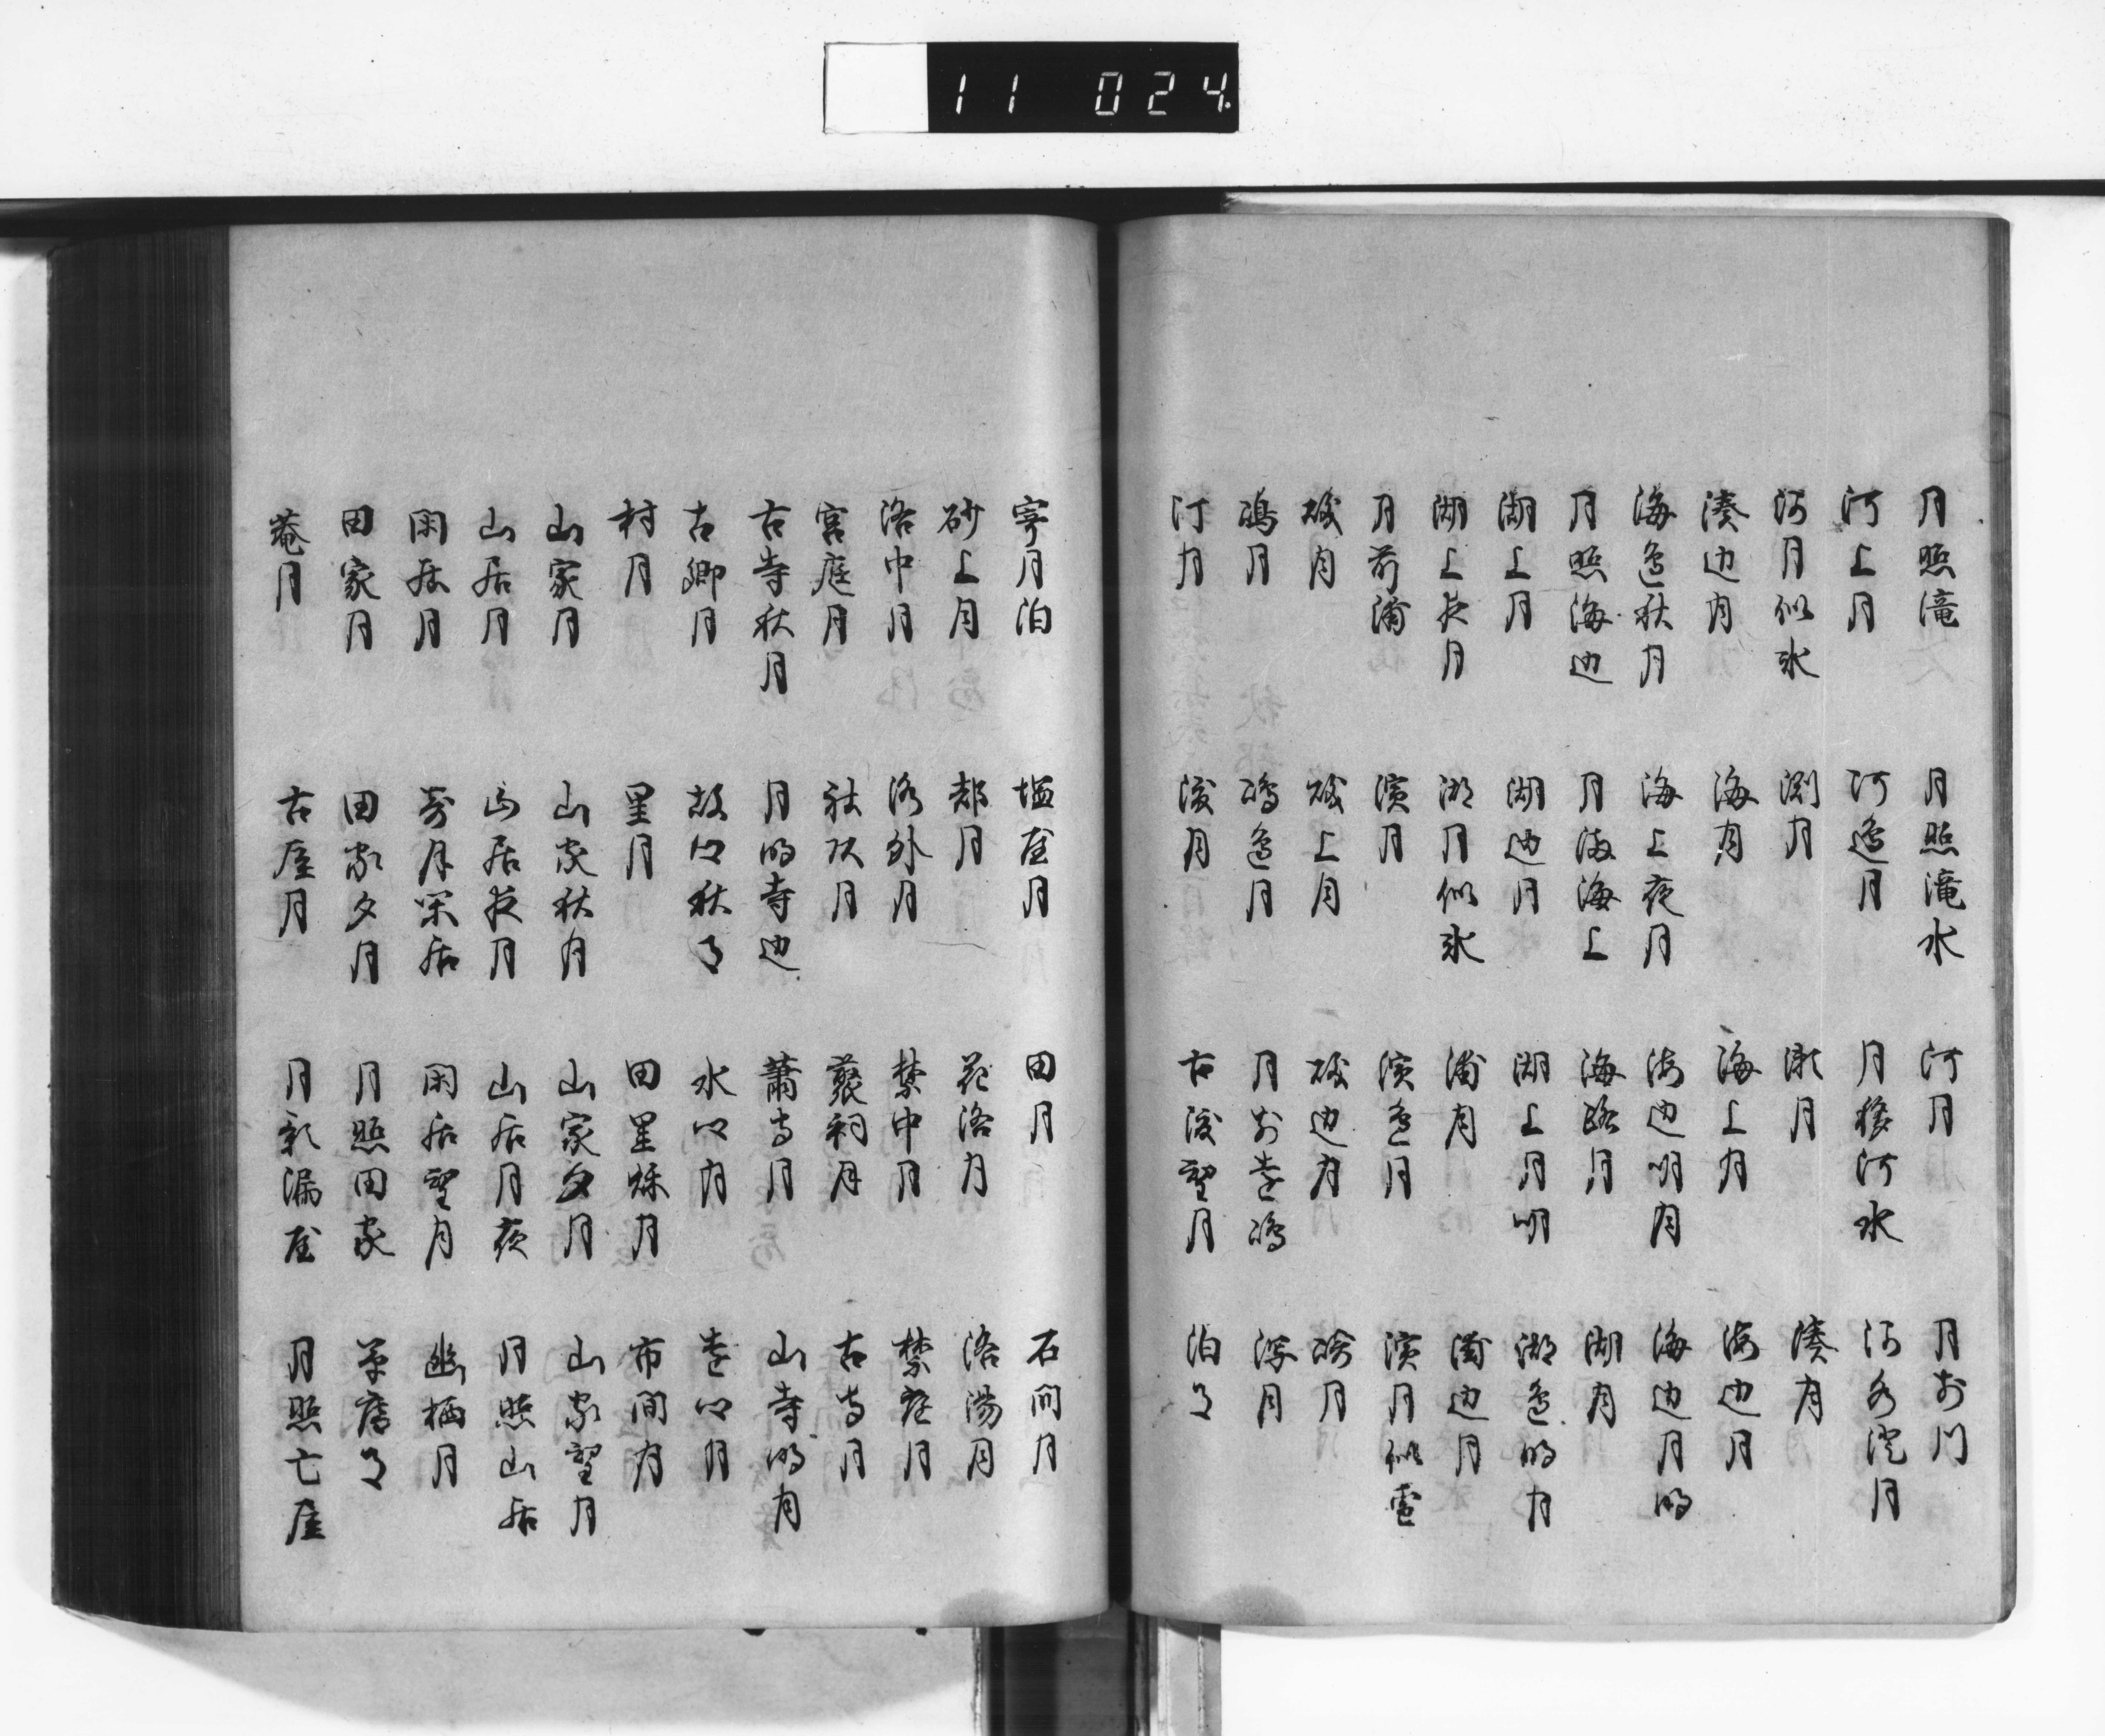 11 024
月照滝 月照滝水 河月 月前川
河上月 河辺月 月移河水 河水澄月
河月似氷 淵月 瀬月 湊月
湊辺月 海月 海上月 海辺月
海辺秋月 海上夜月 海辺明月 海辺月明
月照海辺 月満海上 海路月 湖月
湖上月 湖辺月 湖上月明 湖辺明月
湖上夜月 湖月似氷 浦月 浦辺月
月前浦 濱月 濱辺月 濱月似雪
磯月 磯上月 磯辺月 月
嶋月 嶋辺月 月前遠嶋 浮月
汀月 渡月 古渡望月 泊月
月泊 塩屋月 田月 石間月
砂上月 都月 花洛月 洛陽月
洛中月 洛外月 禁中月 禁庭月
宮庭月 社頭月 叢祠月 古寺月
古寺秋月 月明寺辺 蕭寺月 山寺明月
古郷月 故郷秋月 水郷月 遠郷月
村月 里月 田里秋月 市間月
山家月 山家秋月 山家夕月 山家望月
山居月 山居夜月 山居月夜 月照山居
閑居月 寄月閑居 閑居望月 幽栖月
田家月 田家夕月 月照田家 草店月
菴月 古屋月 月影漏屋 月照亡屋